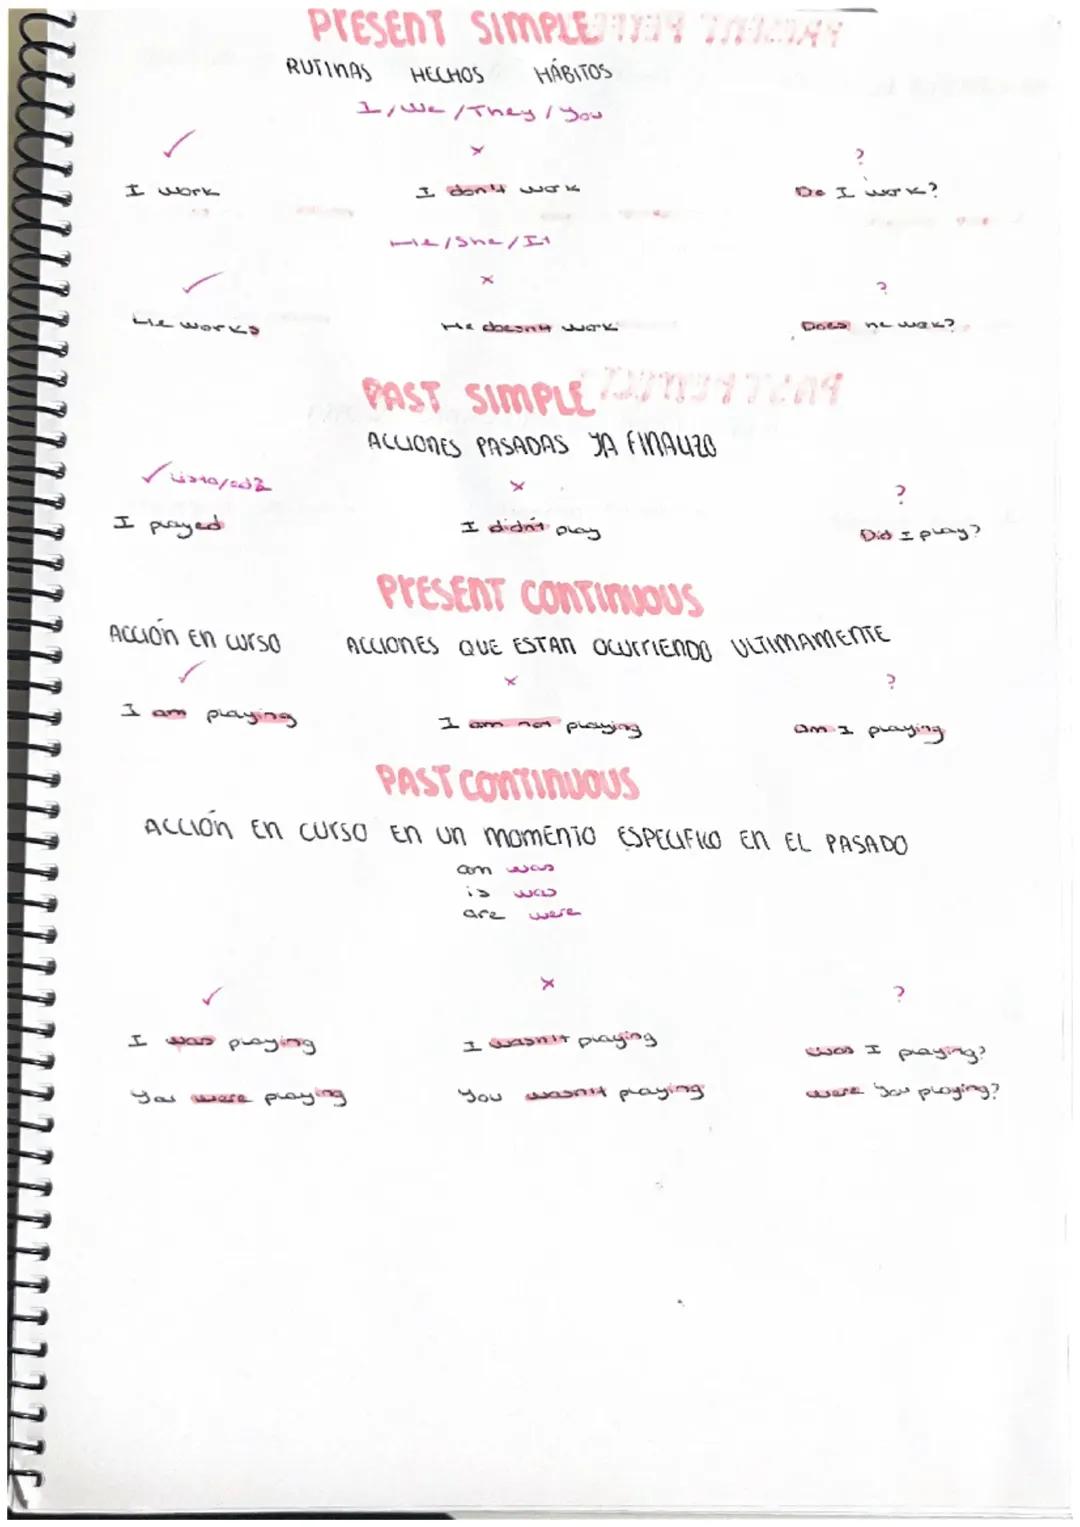 PRESENT SIMPLE
RUTINAS HECHOS HÁBITOS
I/We/They/You
✓ × ?
I work I don't work Do I work?
He/She/It
✓ × ?
He works He doesn't work Does he work?
PAST SIMPLE
ACCIONES PASADAS YA FINALIZO
✓ Lista/ed2 × ?
I played I didn't play Did I play?
PRESENT CONTINUOUS
ACCIÓN EN CURSO ACCIONES QUE ESTAN OCURRIENDO ULTIMAMENTE
✓ × ?
I am playing I am not playing am I playing
PAST CONTINUOUS
ACCIÓN EN CURSO EN UN MOMENTO ESPECIFICO EN EL PASADO
am was
is was
are were
✓ × ?
I was playing I wasn't playing was I playing?
You were playing You wasn't playing were you playing?